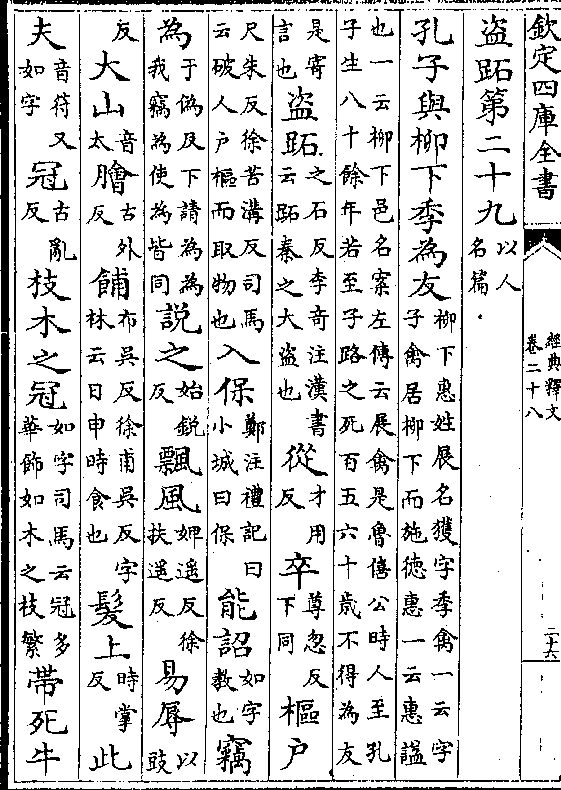 欽定四庫全書
經典釋文
卷二十八
二十六
盜跖第二十九以人名篇
孔子與柳下季為友柳下惠姓展名獲字季禽一云字子禽居柳下而施徳惠一云惠諡
也一云柳下邑名案左傳云展禽是魯僖公時人至孔子生八十餘年若至子路之死百五六十歲不得為友
是寄言也盜跖之石反李奇注漢書云跖秦之大盜也從才用反卒尊忽反下同樞户
尺朱反徐苦溝反司馬云破人户樞而取物也入保鄭注禮記曰小城曰保能詔如字教也竊
為于偽反下請為為我竊為使為皆同說之始鋭反飄風婢遥反徐扶遥反易辱以豉
反大山音太膾古外反餔布吳反徐甫吳反字林云日申時食也髮上時掌反此
夫音符又如字冠古亂反枝木之冠如字司馬云冠多華飾如木之枝繁帶死牛